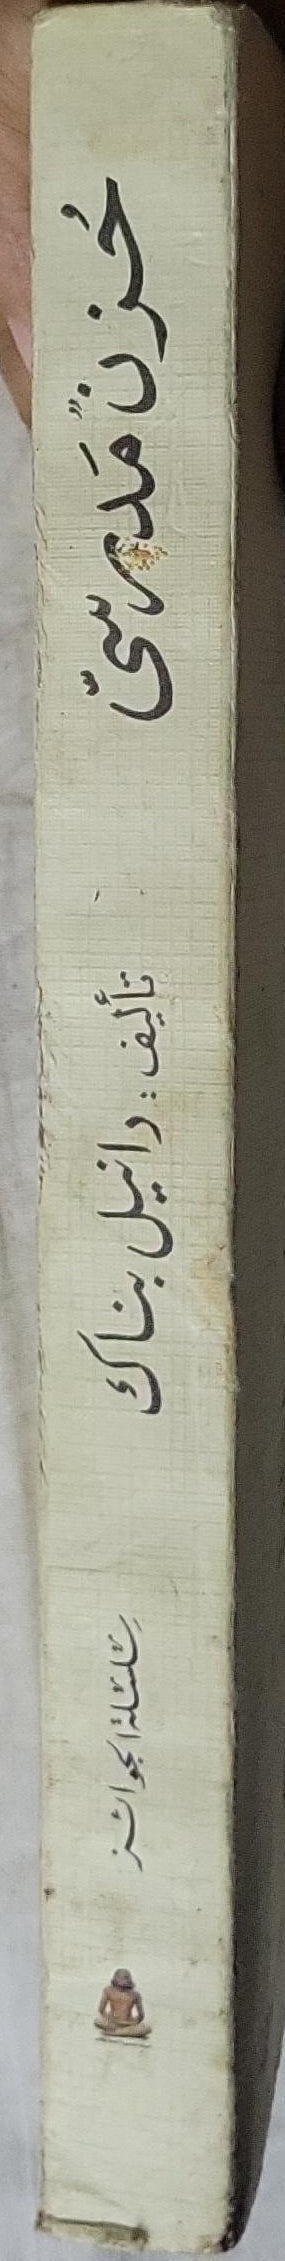 حُزنٌ مَدرسىّ
تأليف: دانيل بناك
سِلسلة الجوائز